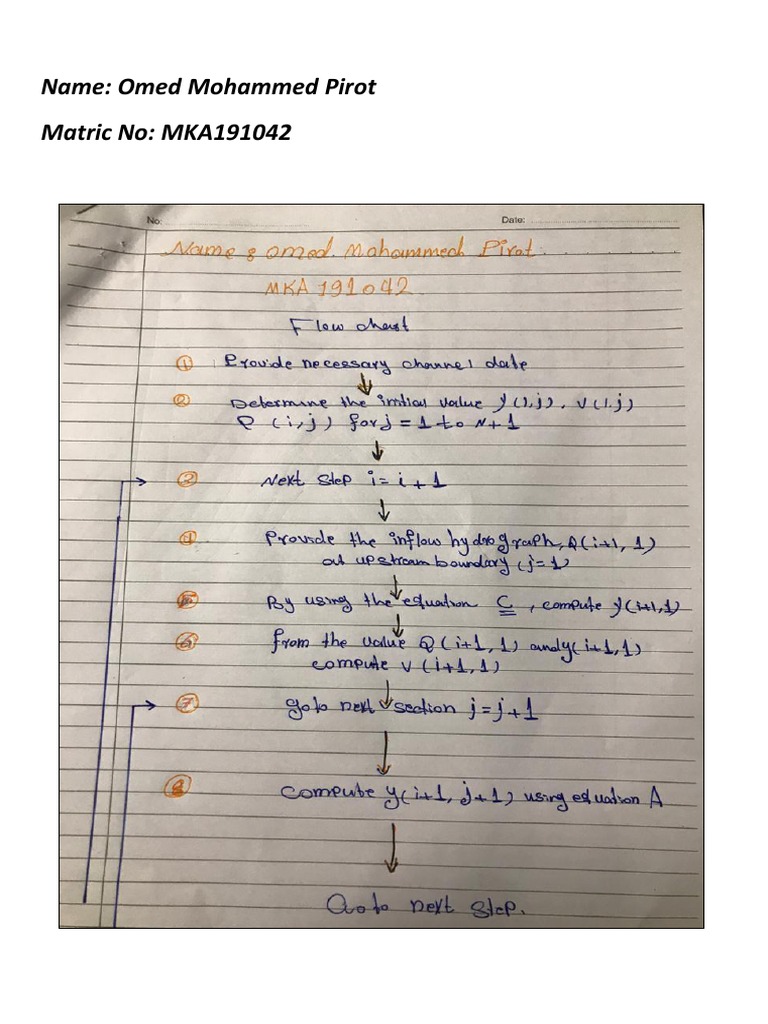 Name: Omed Mohammed Pirot
Matric No: MKA191042
No: Date:
Name: omed. Mohammed Pirot
MKA 191042
Flow chart
① Provide necessary channel date
② Determine the initial value y(1,j), V(1,j)
Q (i,j) for j = 1 to N+1
③ Next step i = i + 1
④ Provide the inflow hydrograph, Q(i+1, 1)
at upstream boundary (j=1)
⑤ By using the equation C, compute y(i+1,1)
⑥ from the value Q(i+1,1) and y(i+1,1)
compute v (i+1,1)
⑦ goto next section j = j+1
⑧ compute y(i+1, j+1) using equation A
Go to next step.